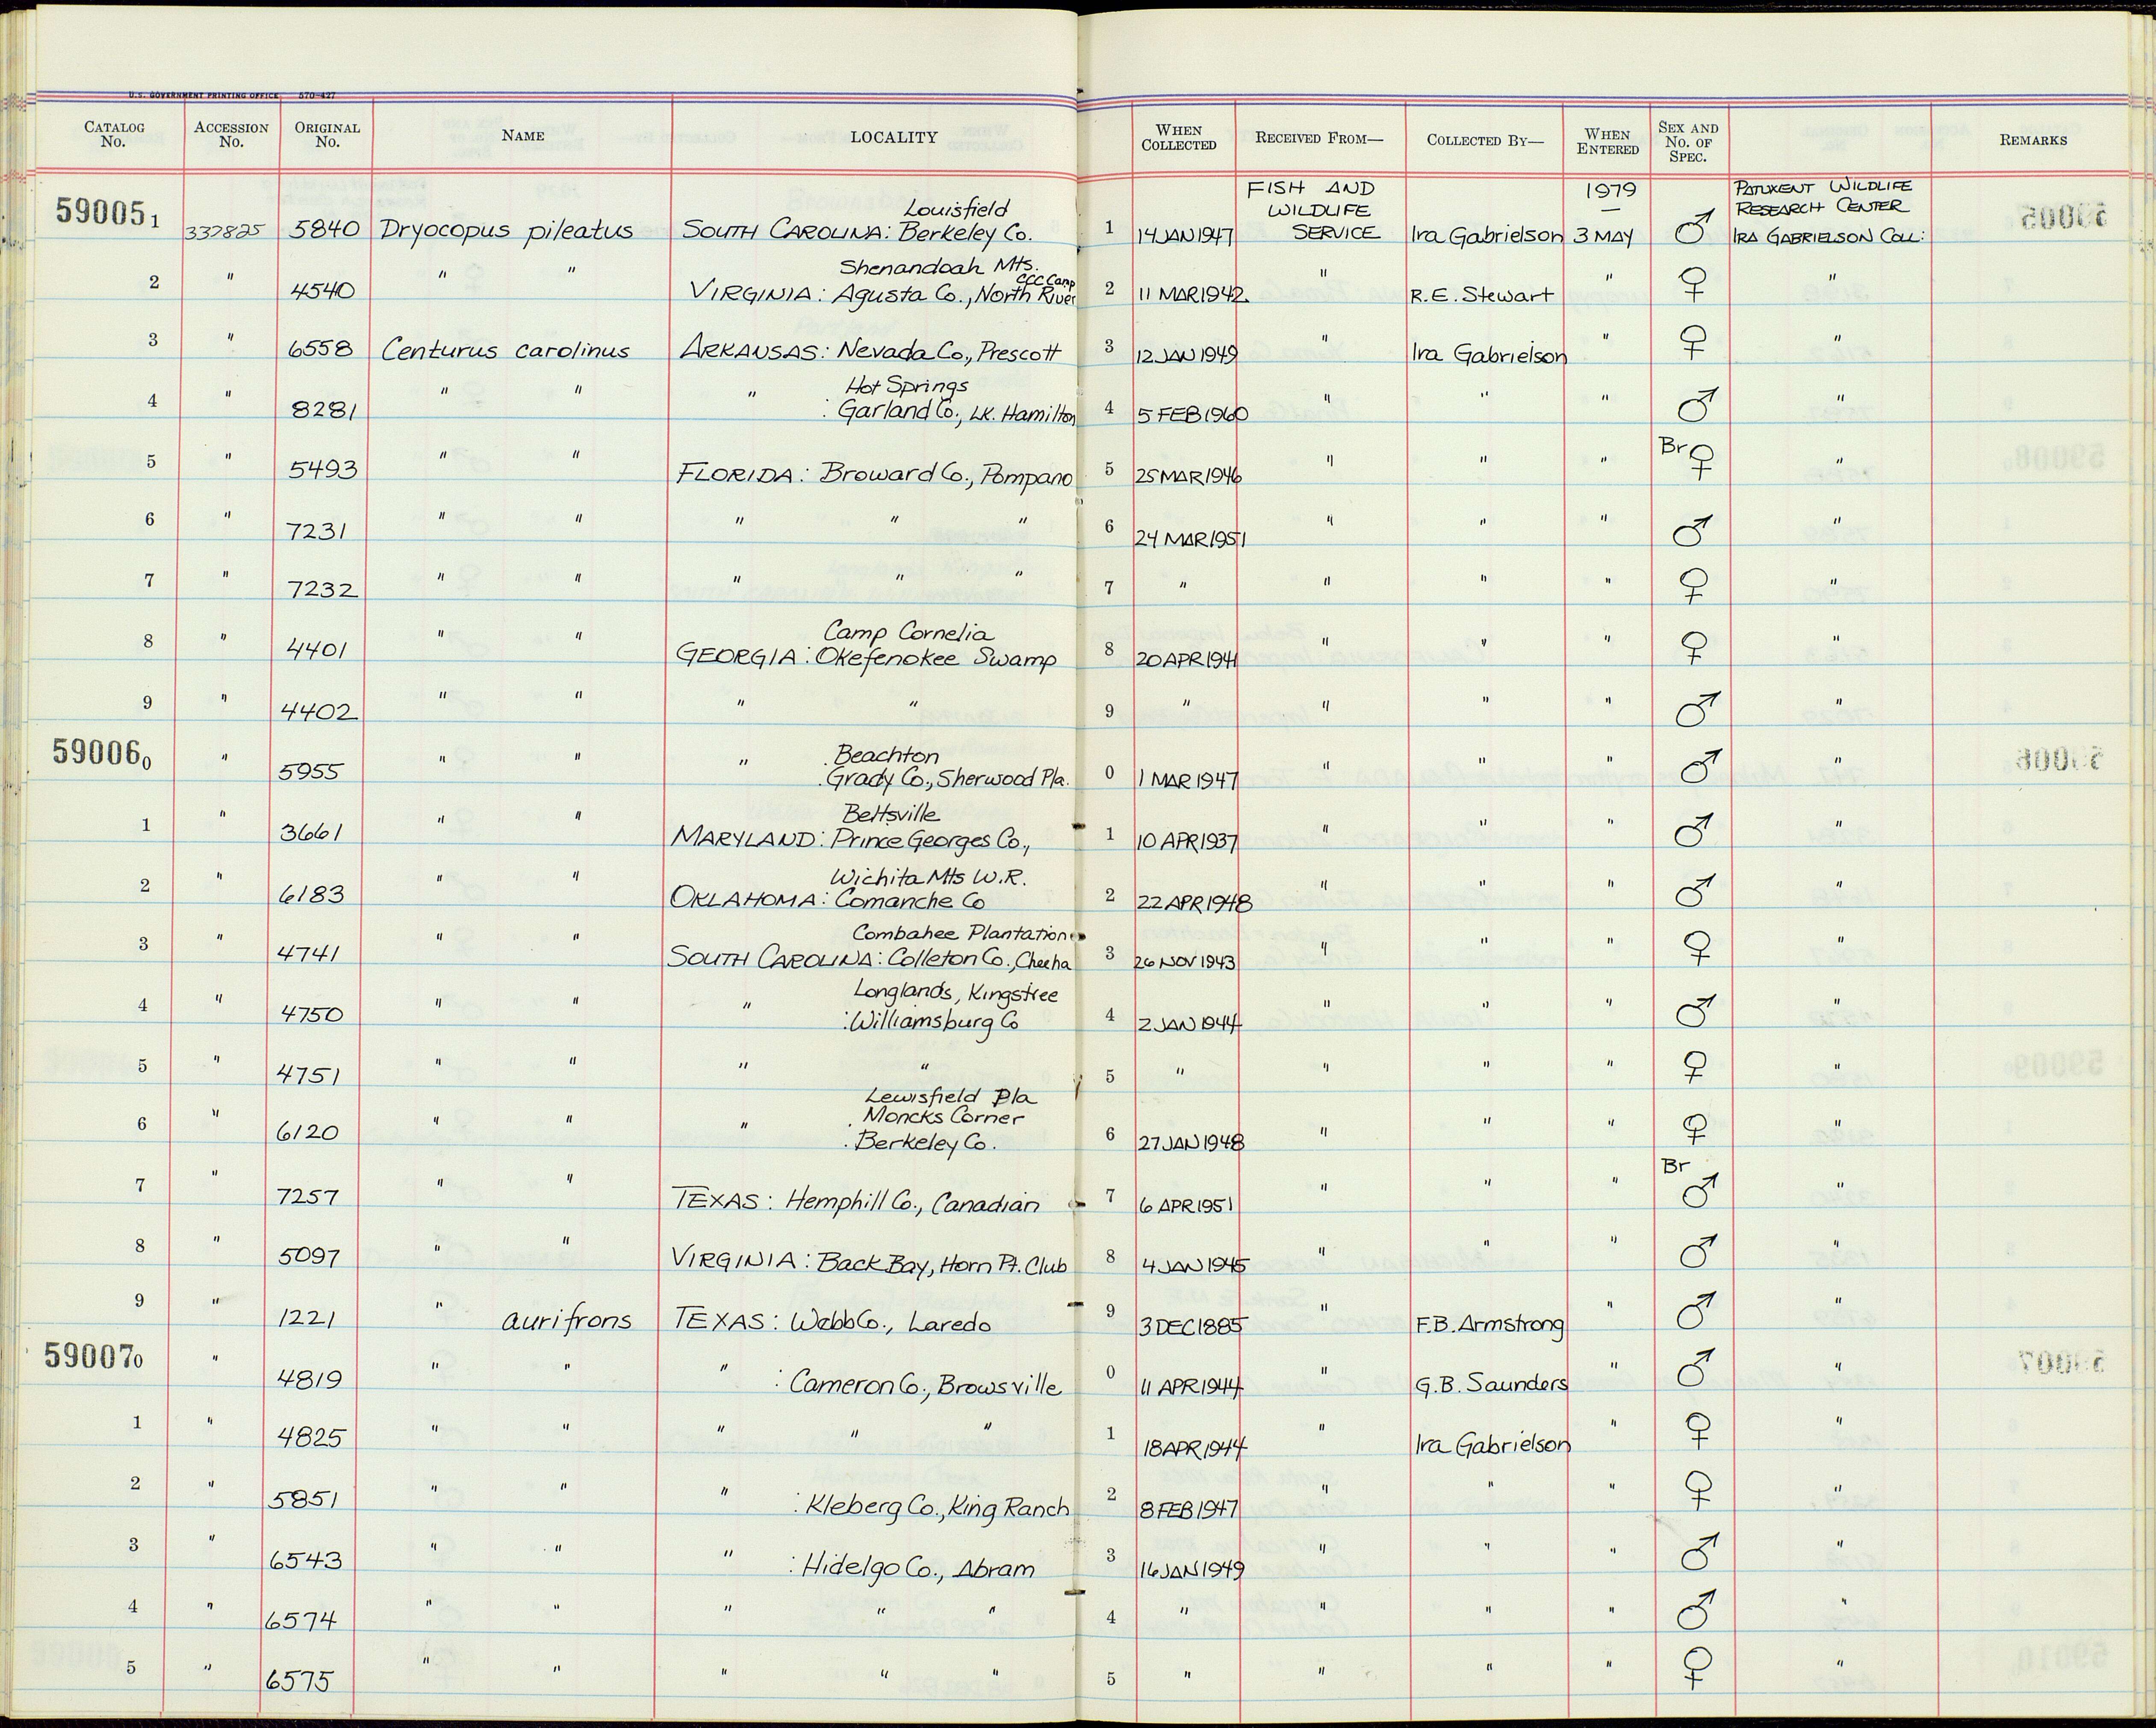 U.S. GOVERNMENT PRINTING OFFICE 570-427
CATALOG No. ACCESSION No. ORIGINAL No. NAME LOCALITY WHEN COLLECTED RECEIVED FROM— COLLECTED BY— WHEN ENTERED SEX AND No. OF SPEC. REMARKS
FISH AND 1979 PATUXENT WILDLIFE
Louisfield WILDLIFE — RESEARCH CENTER
590051 332825 5840 Dryocopus pileatus SOUTH CAROLINA: Berkeley Co. 1 14 JAN 1947 SERVICE Ira Gabrielson 3 MAY ♂ IRA GABRIELSON COLL:
Shenandoah Mts.
CCC Camp
2 " 4540 " " VIRGINIA: Agusta Co., North River 2 11 MAR 1942 " R.E. Stewart " ♀ "
3 " 6558 Centurus carolinus ARKANSAS: Nevada Co., Prescott 3 12 JAN 1949 " Ira Gabrielson " ♀ "
Hot Springs
4 " 8281 " " " : Garland Co., LK. Hamilton 4 5 FEB 1960 " " " ♂ "
5 " 5493 " " FLORIDA: Broward Co., Pompano 5 25 MAR 1946 " " " Br ♀ "
6 " 7231 " " " " " 6 24 MAR 1951 " " " ♂ "
7 " 7232 " " " " " 7 " " " " ♀ "
Camp Cornelia
8 " 4401 " " GEORGIA: Okefenokee Swamp 8 20 APR 1941 " " " ♀ "
9 " 4402 " " " " 9 " " " " ♂ "
Beachton
590060 " 5955 " " " : Grady Co., Sherwood Pla. 0 1 MAR 1947 " " " ♂ "
Beltsville
1 " 3661 " " MARYLAND: Prince Georges Co., 1 10 APR 1937 " " " ♂ "
Wichita Mts W.R.
2 " 6183 " " OKLAHOMA: Comanche Co 2 22 APR 1948 " " " ♂ "
Combahee Plantation
3 " 4741 " " SOUTH CAROLINA: Colleton Co., Cheeha 3 26 NOV 1943 " " " ♀ "
Longlands, Kingstree
4 " 4750 " " " : Williamsburg Co 4 2 JAN 1944 " " " ♂ "
5 " 4751 " " " " 5 " " " " ♀ "
Lewisfield Pla
Moncks Corner
6 " 6120 " " " : Berkeley Co. 6 27 JAN 1948 " " " ♀ "
7 " 7257 " " TEXAS: Hemphill Co., Canadian 7 6 APR 1951 " " " Br ♂ "
8 " 5097 " " VIRGINIA: Back Bay, Horn Pt. Club 8 4 JAN 1945 " " " ♂ "
9 " 1221 " aurifrons TEXAS: Webb Co., Laredo 9 3 DEC 1885 " F.B. Armstrong " ♂ "
590070 " 4819 " " " : Cameron Co., Browsville 0 11 APR 1944 " G.B. Saunders " ♂ "
1 " 4825 " " " " " 1 18 APR 1944 " Ira Gabrielson " ♀ "
2 " 5851 " " " : Kleberg Co., King Ranch 2 8 FEB 1947 " " " ♀ "
3 " 6543 " " " : Hidelgo Co., Abram 3 16 JAN 1949 " " " ♂ "
4 " 6574 " " " " " 4 " " " " ♂ "
5 " 6575 " " " " " 5 " " " " ♀ "